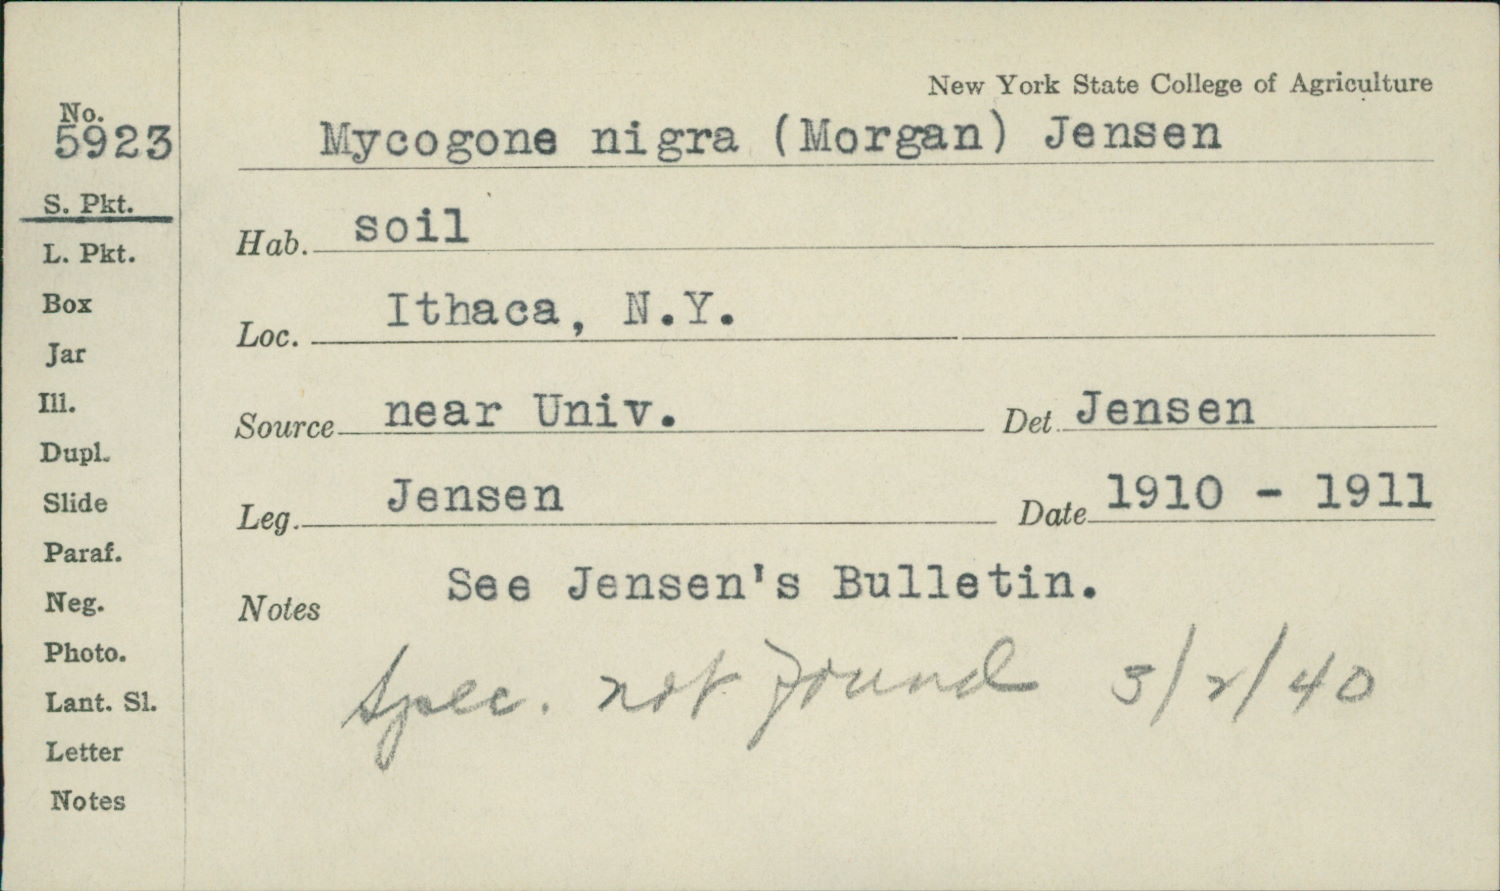 New York State College of Agriculture
No.
5923
Mycogone nigra (Morgan) Jensen
S. Pkt.
L. Pkt.
Box
Jar
Ill.
Dupl.
Slide
Paraf.
Neg.
Photo.
Lant. Sl.
Letter
Notes
Hab. soil
Loc. Ithaca, N.Y.
Source near Univ. Det Jensen
Leg. Jensen Date 1910 - 1911
Notes See Jensen's Bulletin.
Spec. not found 3/2/40